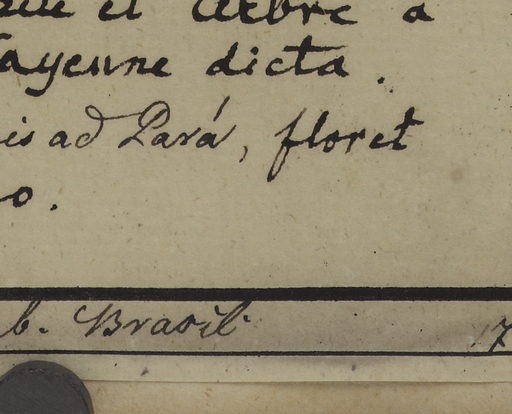 et Arbre a
Cayenne dicta.
is ad Pará, floret
o.
b. Brasil. 7